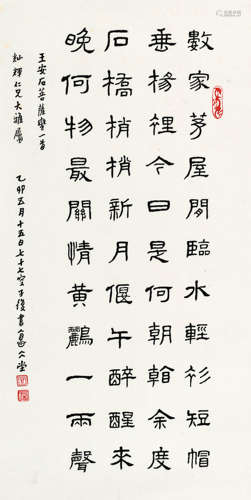 數家茅屋閒臨水輕衫短帽
垂楊裡今日是何朝看余度
石橋梢梢新月偃午醉醒來
晚何物最關情黃鸝一兩聲
王安石菩薩蠻一首
輝仁兄大雅屬
乙卯五月十五日七十七叟子復書公堂